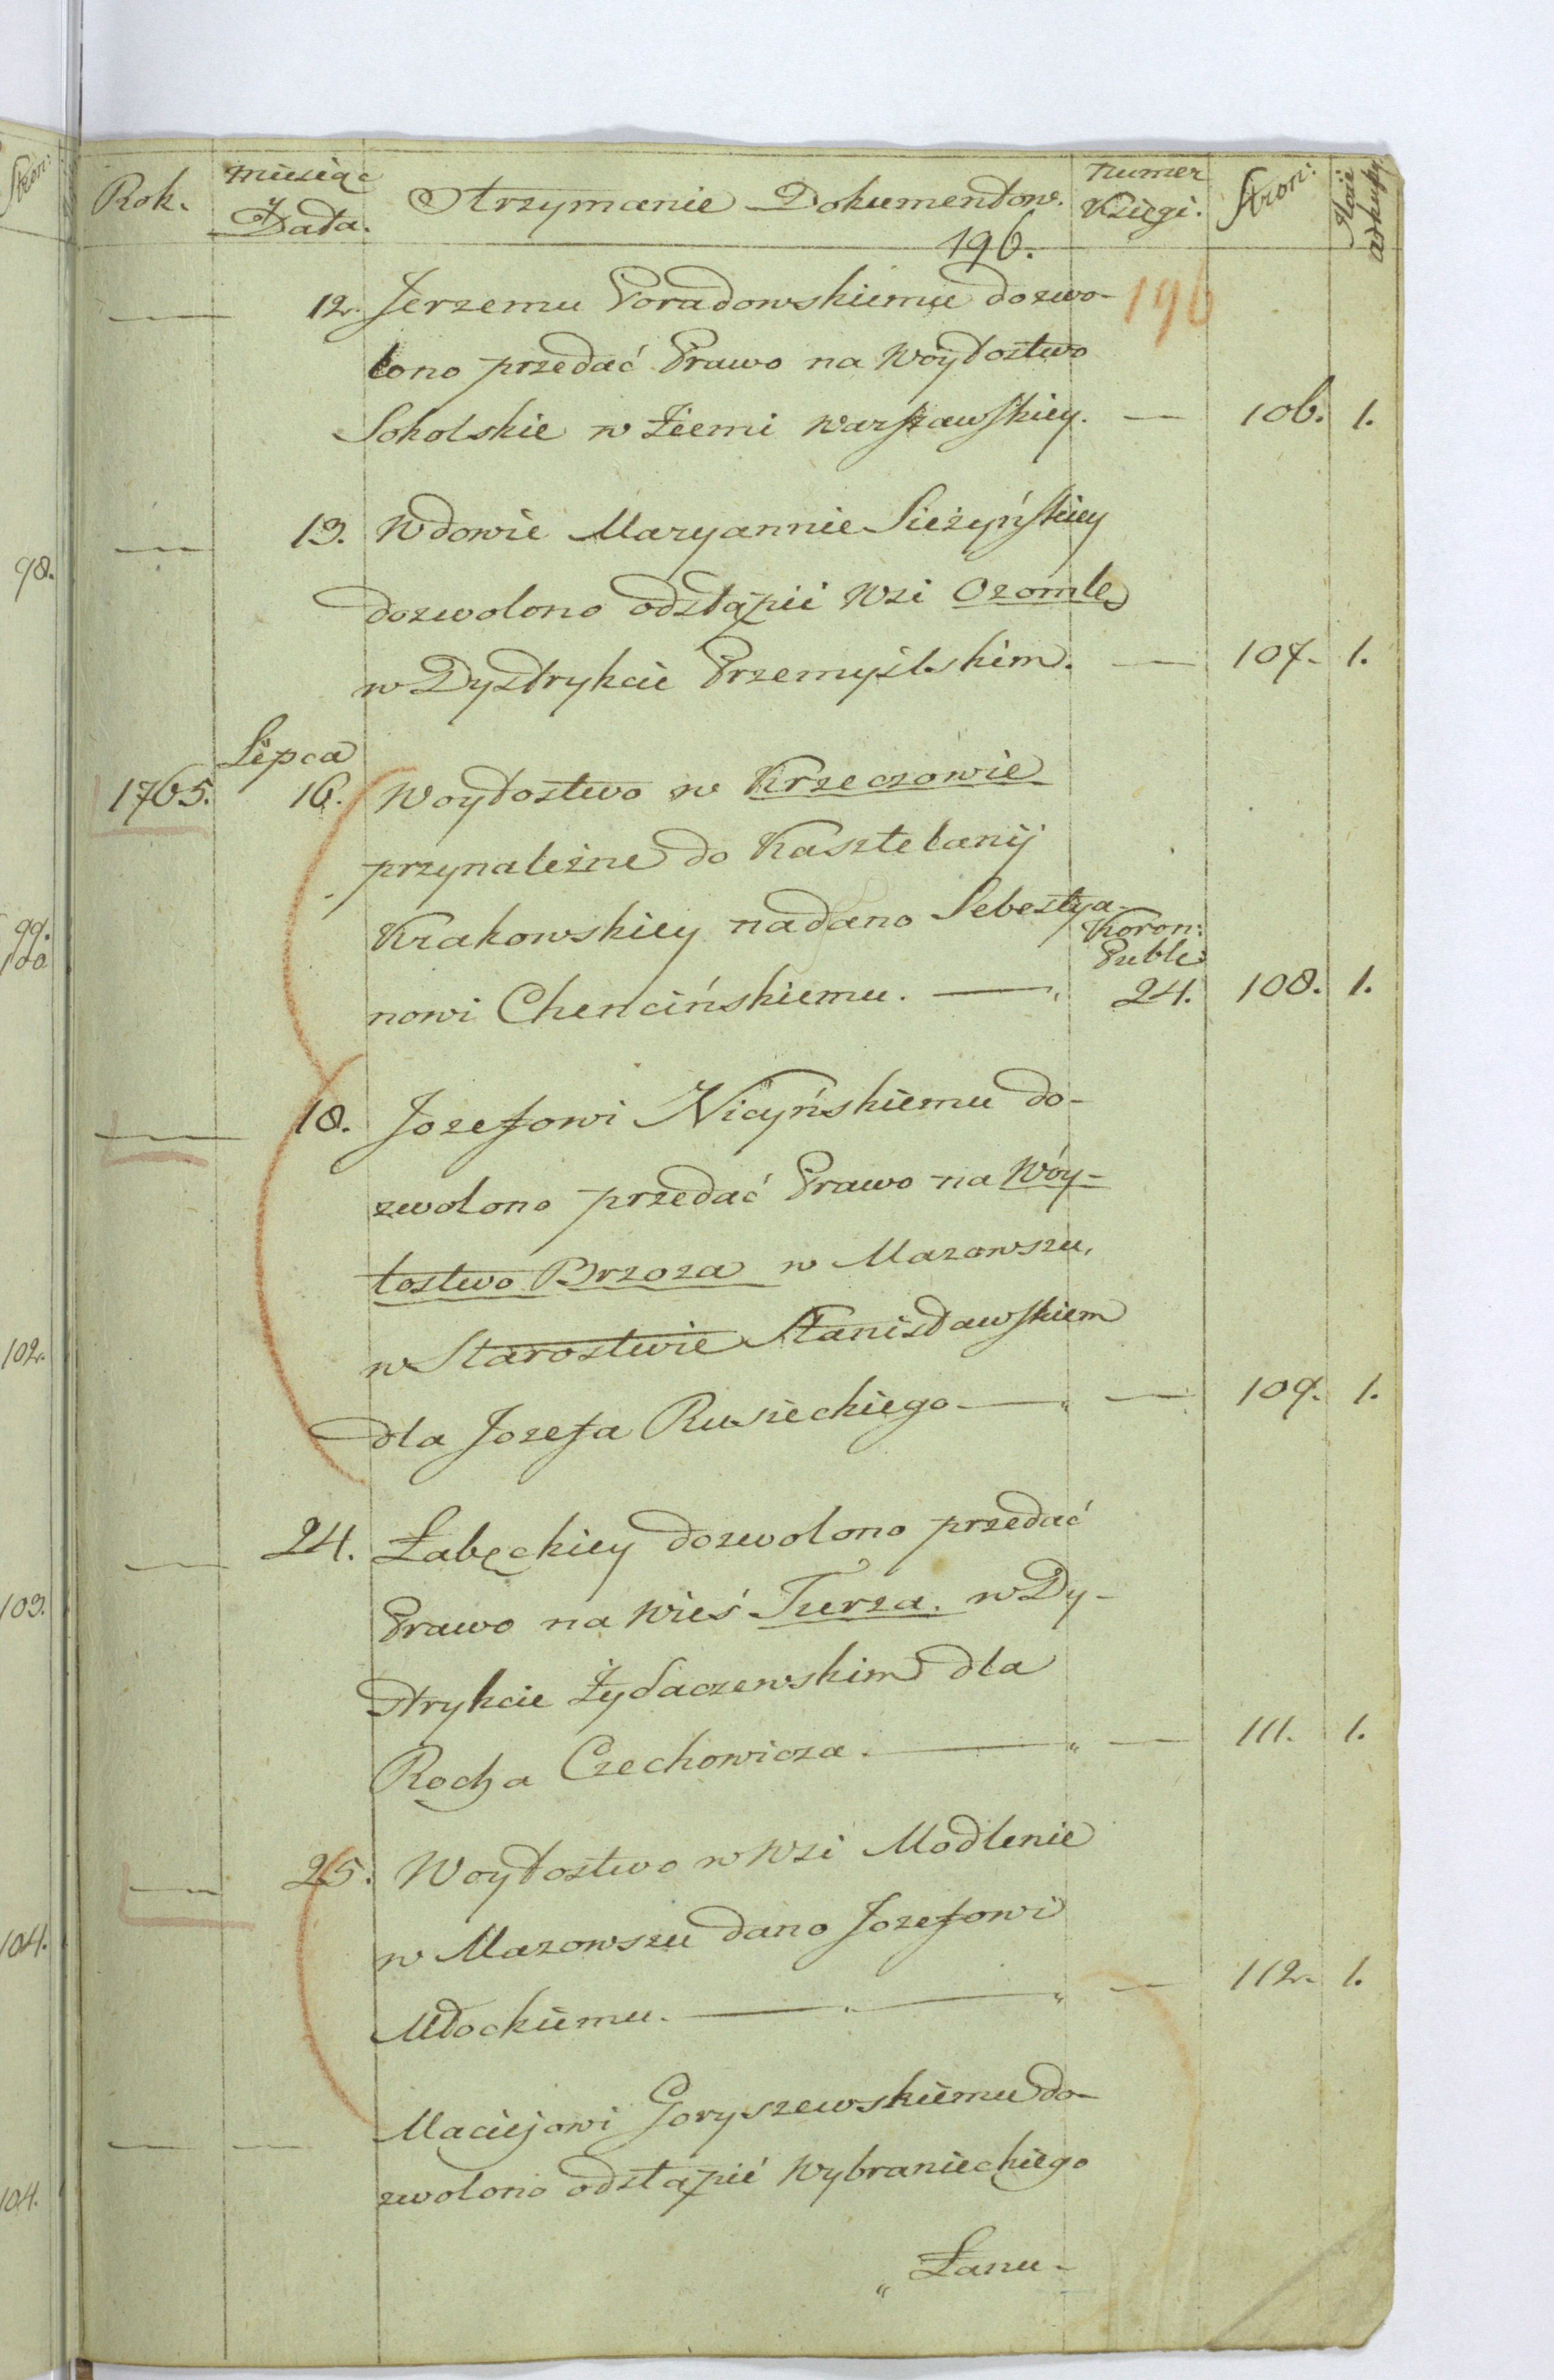 Stron:
Rok.
miesiąc
i Data.
Otrzymanie Dokumentow.
numer
Księgi.
Stron:
Ilość
arkuszy.
196.
196
— 12. Jerzemu Poradowskiemu dozwo-
lono przedać Prawo na Woytostwo
Sokolskie w Ziemi Warszawskiey. — 106. 1.
— 13. Wdowie Maryannie Sieżyńskiey
98.
dozwolono odstąpić Wsi Ozomle
w Dystrykcie Przemyślskim. — 107. 1.
Lipca
1765. 16. Woytostwo w Krzeczowie
przynależne do Kasztelanij
Krakowskiey nadano Sebestya-
99.
100
Koron:
Publ:
nowi Chencińskiemu. — 24. 108. 1.
— 18. Jozefowi Nicyńskiemu do-
zwolono przedać Prawo na Wóy-
tostwo Brzoza w Mazowszu,
w Starostwie Stanisławskiem
102.
dla Jozefa Rusieckiego — — 109. 1.
— 24. Łabęckiey dozwolono przedać
Prawo na Wieś Turza. w Dy-
103.
strykcie Żydaczewskim dla
Rocha Czechowicza. — — 111. 1.
— 25. Woytostwo w Wsi Modlenie
w Mazowszu dano Jozefowi
104.
Młockiemu. — — — 112. 1.
— — Maciejowi Goryszewskiemu do-
zwolono odstąpić Wybranieckiego
104.
„Łanu-